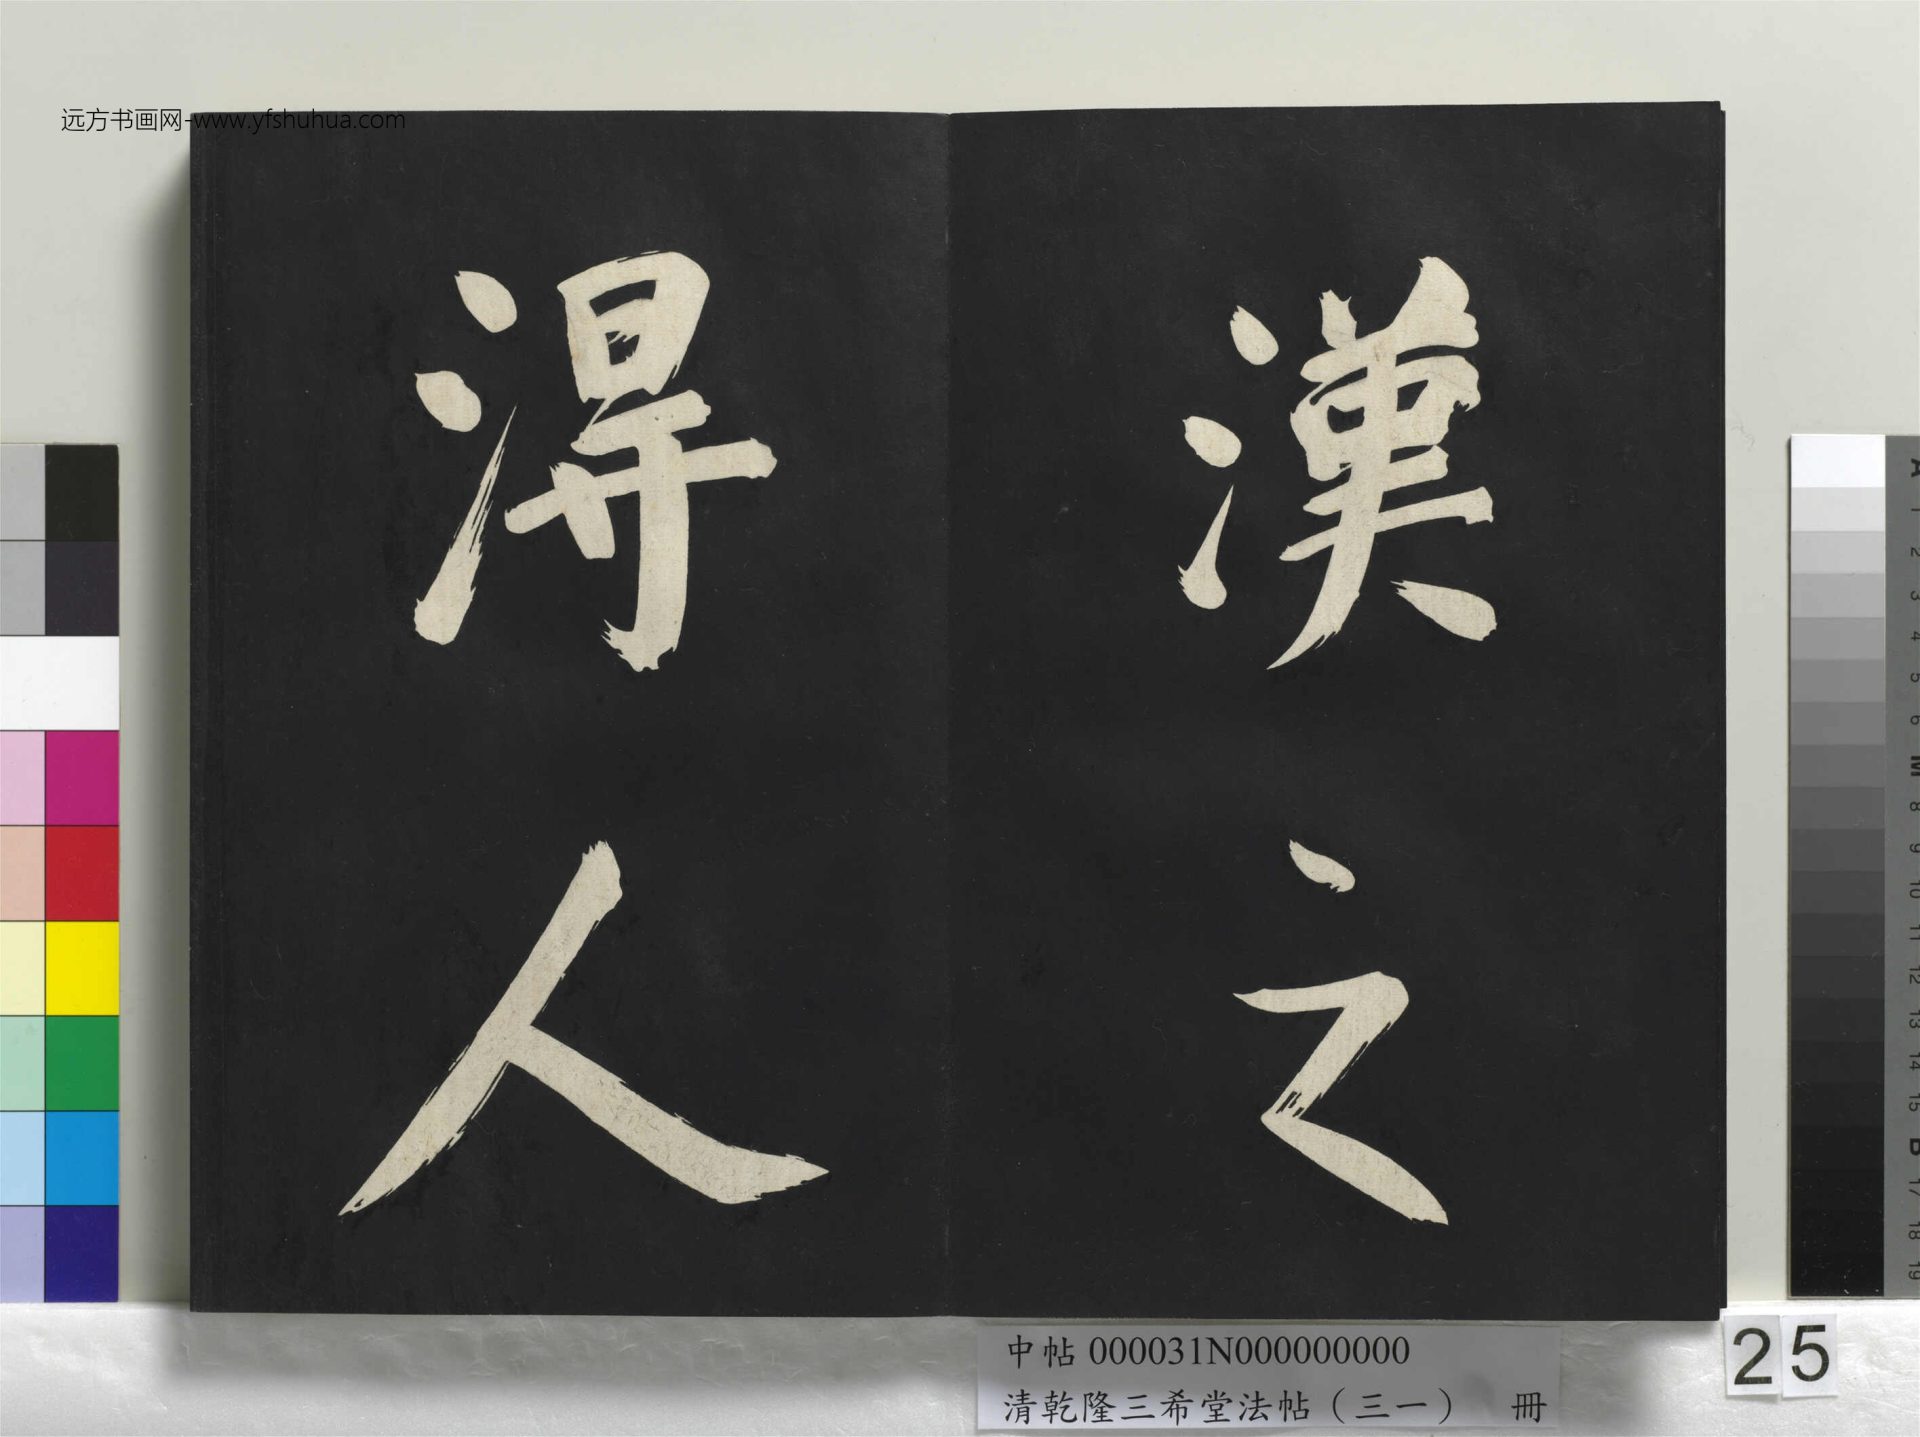 远方书画网-www.yfshuhua.com
漢之
淂人
中帖 000031N000000000
清乾隆三希堂法帖（三一） 冊
25
A
1
2
3
4
5
6
M
8
9
10
11
12
13
14
15
B
17
18
19